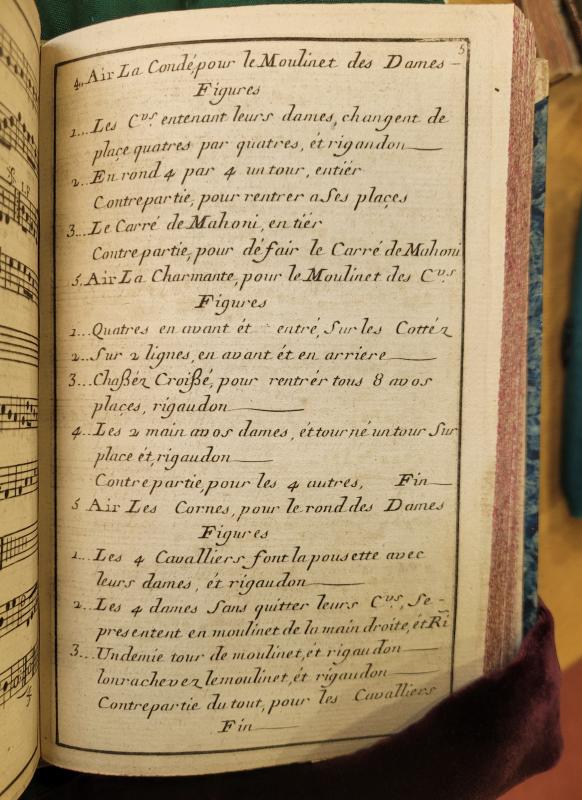 5
4.. Air La Condé, pour le Moulinet des Dames –
Figures
1... Les C.vs. entenant leurs dames, changent de
plaçe quatres par quatres, ét rigaudon
2... En rond 4 par 4 un tour, entiér
Contrepartie, pour rentrer a Ses plaçes
3... Le Carré de Mahoni, en tiér
Contre partie, pour défair le Carré de Mahoni
5. Air La Charmante, pour le Moulinet des C.vs
Figures
1... Quatres en avant ét entré, Sur les Cottéz
2... Sur 2 lignes, en avant ét en arriere
3... Chaßéz Croißé, pour rentrér tous 8 avos
plaçes, rigaudon
4... Les 2 main avos dames, ét tourné un tour Sur
place ét, rigaudon
Contre partie, pour les 4 autres, Fin
5 Air Les Cornes, pour le rond des Dames
Figures
1... Les 4 Cavalliers font la pousette avec
leurs dames, ét rigaudon
2... Les 4 dames Sans quitter leurs C.vs, Se-
presentent en moulinet de la main droite, ét Ri
3... Un demie tour de moulinet, ét rigaudon
lonrachevez lemoulinet, ét rigaudon
Contrepartie du tout, pour les Cavalliers
Fin
4